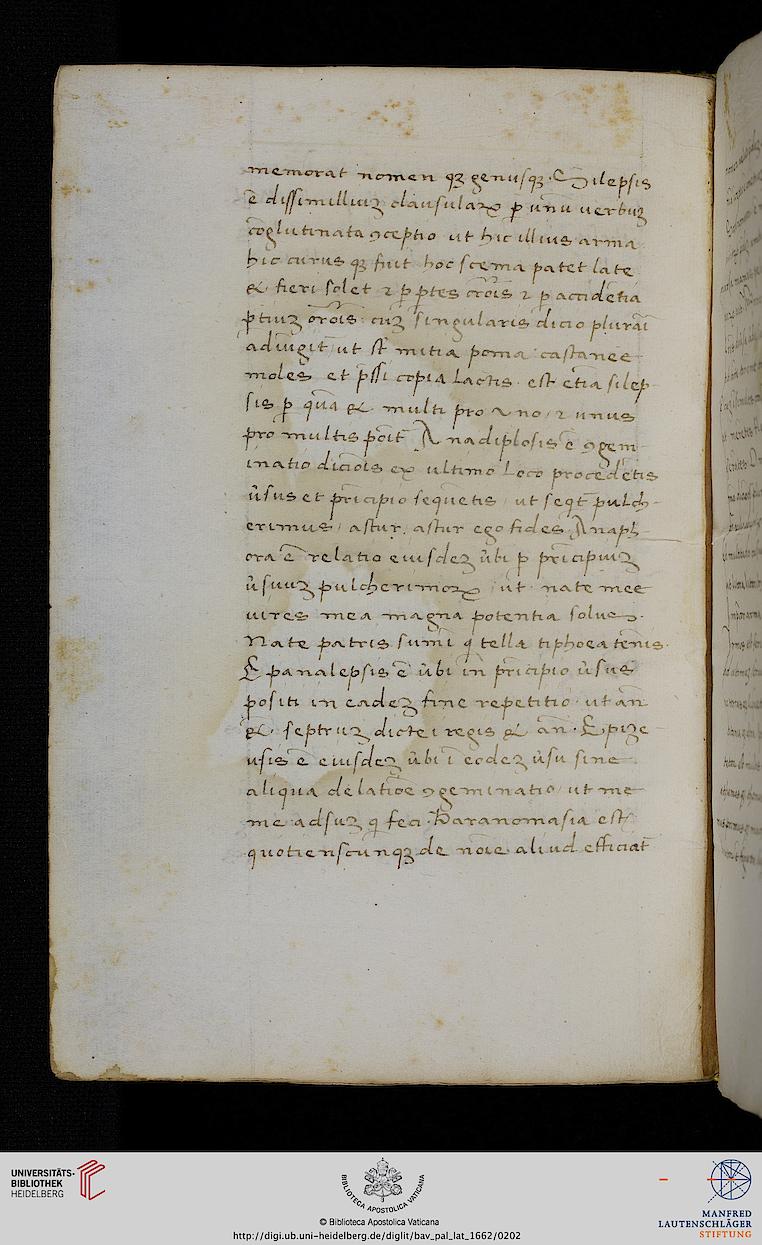 memorat nomen qꝫ genusqꝫ. Silepsis
ē dissimilliuꝫ clausularꝝ ꝑ unū uerbuꝫ
cōglutinata ꝯceptio ut hic illius arma
hic currus qꝫ fuit hoc scema patet late
& fieri solet ⁊ ꝑ ꝑtes orōis ⁊ ꝑ accidētia
ꝑtiuꝫ orōis. cuꝫ singularis dicio
adiūgit̄ ut st̄ mitia poma castanee
moles et p̄ssi copia lactis. est etiā silep
sis ꝑ quā & multi pro uno, ⁊ unus
pro multis poīt̄ Anadiplosis ē ꝯgem
inatio dicīois ex ultimo loco procedētis
ūsus et prīcipio sequētis, ut seqt̄ pulch-
erimus, astur, astur ego fides. Anaph
ora ē relatio eiusdeꝫ ūbi ꝑ prīcipiuꝫ
ūsuuꝫ pulcherimorꝝ, ut nate mee
uires mea magna potentia solus.
Nate patris sumī qͥ tella tiphoea tēnis.
Epanalepsis ē ūbi in prīcipio ūsus
positi in eadeꝫ fine repetitio ut an̄
&. septruꝫ dictei regis & an̄. Epize
usis ē eiusdeꝫ ūbi ī eodeꝫ ūsu sine
aliqua delatiōe ꝯgeminatio, ut me
me adsuꝫ qͥ feci. Paranomasia est
quotienscunqꝫ de noīe aliud efficiat̄
UNIVERSITÄTS-
BIBLIOTHEK
HEIDELBERG
BIBLIOTECA APOSTOLICA VATICANA
© Biblioteca Apostolica Vaticana
http://digi.ub.uni-heidelberg.de/diglit/bav_pal_lat_1662/0202
MANFRED
LAUTENSCHLÄGER
STIFTUNG